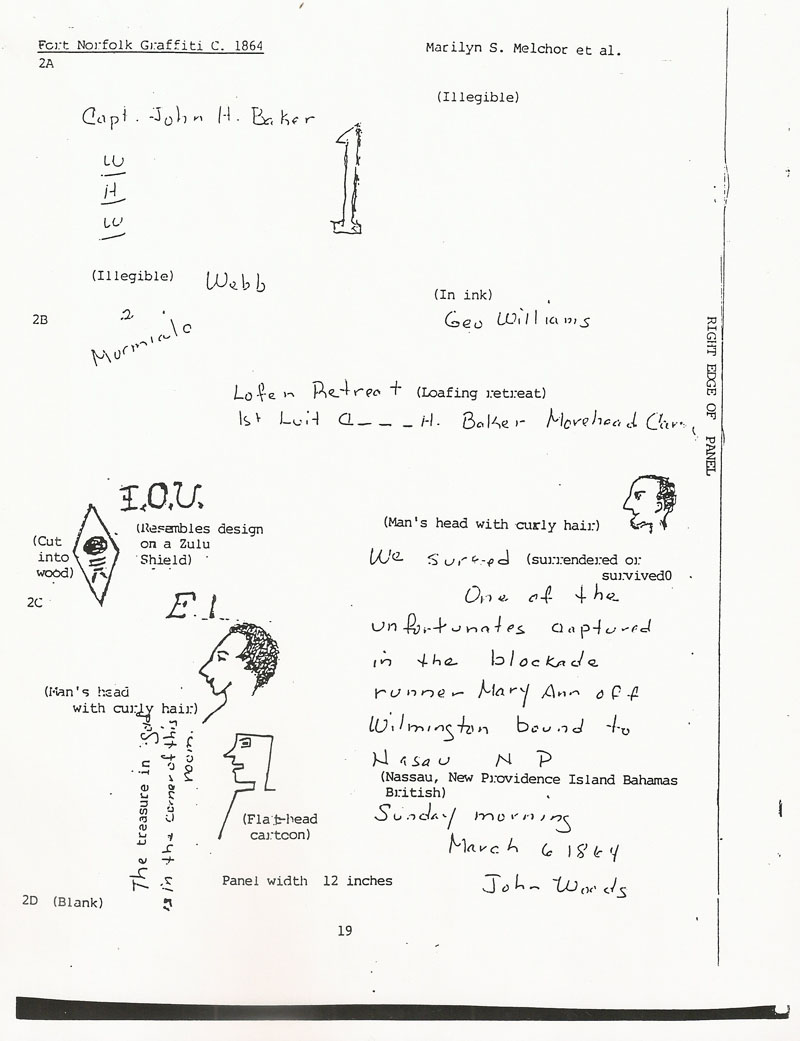 Fort Norfolk Graffiti C. 1864
Marilyn S. Melchor et al.
2A
(Illegible)
Capt. John H. Baker
1
W
H
W
(Illegible) Webb
(In ink)
2B
2
Geo Williams
Lofen Retreat (Loafing retreat)
1st Luit a _ _ _ H. Baker Morehead
RIGHT EDGE OF PANEL
I.O.U.
(Cut
into
wood)
(Resembles design
on a Zulu
Shield)
(Man's head with curly hair)
We surved (surrendered or
survived0
2C
E. I.
One of the
unfortunates captured
in the blockade
runner Mary Ann off
Wilmington bound to
Nasau N P
(Nassau, New Providence Island Bahamas
British)
Sunday morning
March 6 1864
John Woods
(Man's head
with curly hair)
The treasure in
is in the corner of this
room.
(Flat-head
cartoon)
Panel width 12 inches
2D (Blank)
19